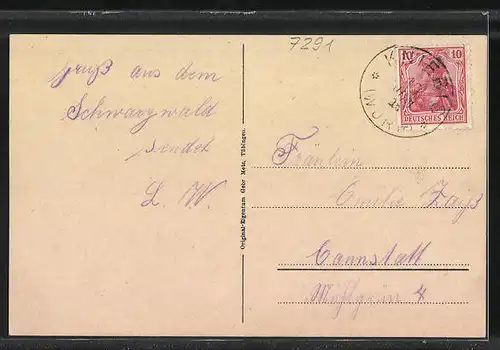 7291
Gruß aus dem
Schwarzwald
sendet
L. W.
Original-Eigentum Gebr Metz, Tübingen.
10 10
DEUTSCHES REICH
Fräulein
Emilie Zaiß
Cannstatt
4